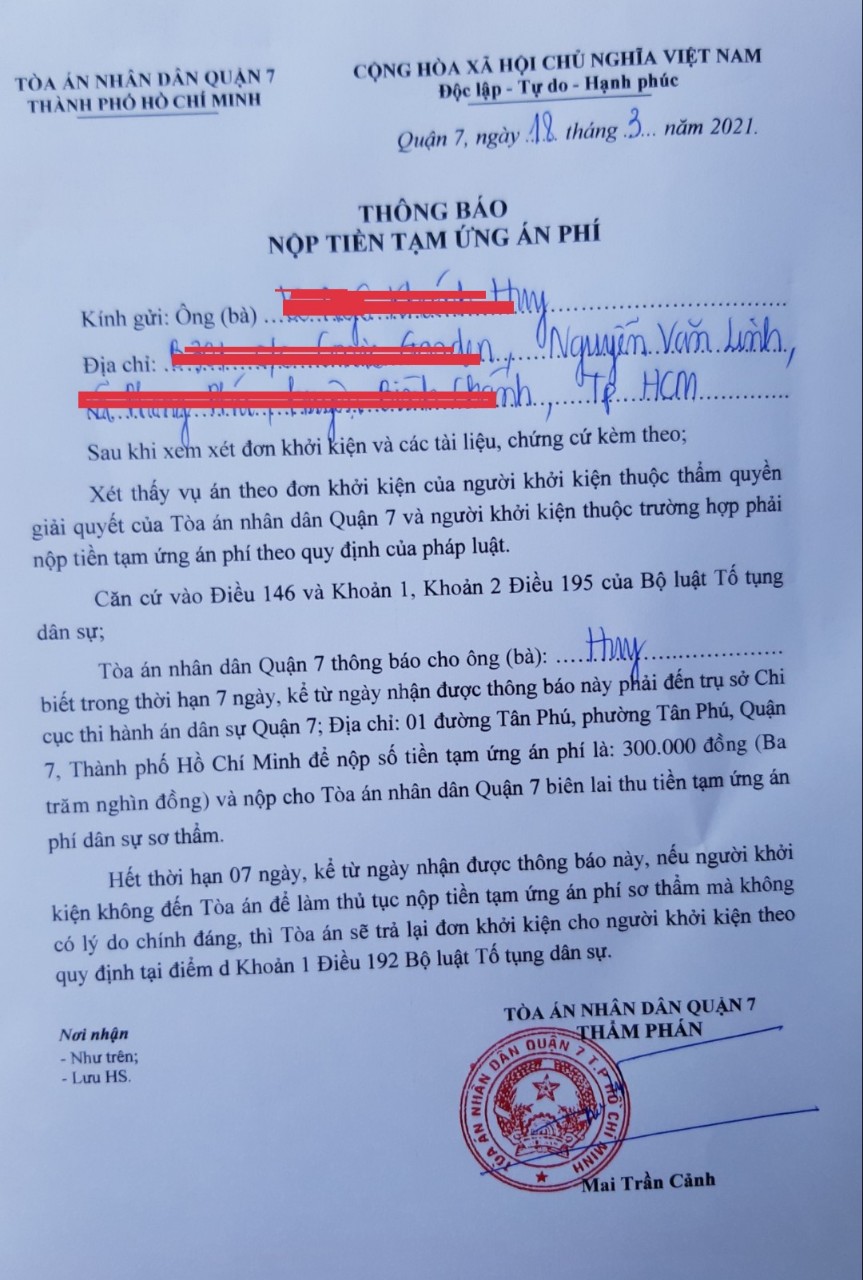 TÒA ÁN NHÂN DÂN QUẬN 7
THÀNH PHỐ HỒ CHÍ MINH
CỘNG HÒA XÃ HỘI CHỦ NGHĨA VIỆT NAM
Độc lập - Tự do - Hạnh phúc
Quận 7, ngày 18 tháng 3 năm 2021.
THÔNG BÁO
NỘP TIỀN TẠM ỨNG ÁN PHÍ
Kính gửi: Ông (bà) ... Huy
Địa chỉ: ..., Nguyễn Văn Linh,
, Tp HCM
Sau khi xem xét đơn khởi kiện và các tài liệu, chứng cứ kèm theo;
Xét thấy vụ án theo đơn khởi kiện của người khởi kiện thuộc thẩm quyền
giải quyết của Tòa án nhân dân Quận 7 và người khởi kiện thuộc trường hợp phải
nộp tiền tạm ứng án phí theo quy định của pháp luật.
Căn cứ vào Điều 146 và Khoản 1, Khoản 2 Điều 195 của Bộ luật Tố tụng
dân sự;
Tòa án nhân dân Quận 7 thông báo cho ông (bà): ...Huy...
biết trong thời hạn 7 ngày, kể từ ngày nhận được thông báo này phải đến trụ sở Chi
cục thi hành án dân sự Quận 7; Địa chỉ: 01 đường Tân Phú, phường Tân Phú, Quận
7, Thành phố Hồ Chí Minh để nộp số tiền tạm ứng án phí là: 300.000 đồng (Ba
trăm nghìn đồng) và nộp cho Tòa án nhân dân Quận 7 biên lai thu tiền tạm ứng án
phí dân sự sơ thẩm.
Hết thời hạn 07 ngày, kể từ ngày nhận được thông báo này, nếu người khởi
kiện không đến Tòa án để làm thủ tục nộp tiền tạm ứng án phí sơ thẩm mà không
có lý do chính đáng, thì Tòa án sẽ trả lại đơn khởi kiện cho người khởi kiện theo
quy định tại điểm d Khoản 1 Điều 192 Bộ luật Tố tụng dân sự.
Nơi nhận
- Như trên;
- Lưu HS.
TÒA ÁN NHÂN DÂN QUẬN 7
THẨM PHÁN
TÒA ÁN NHÂN DÂN QUẬN 7 T.P HỒ CHÍ MINH
Mai Trần Cảnh